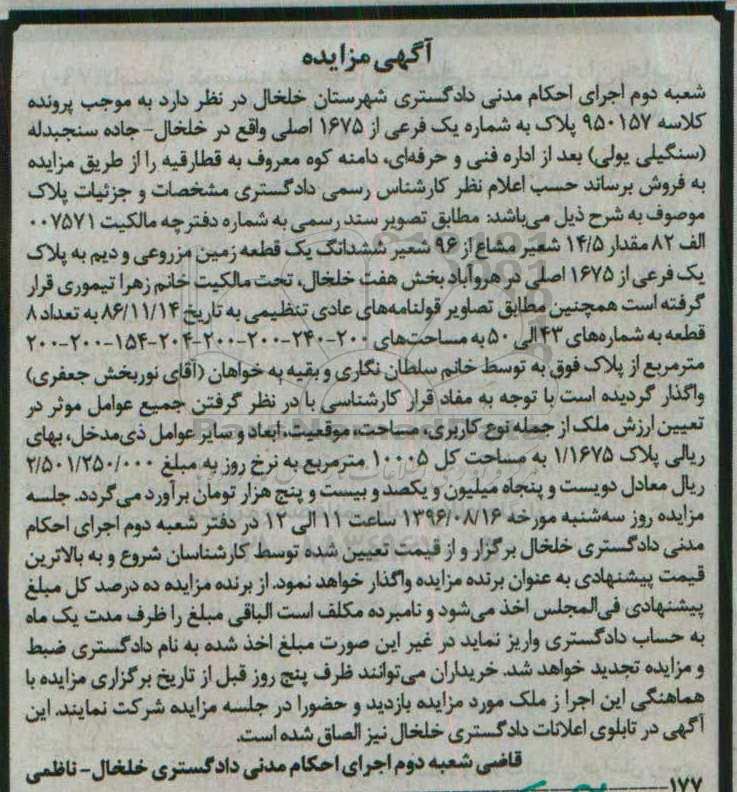 آگهی مزایده
شعبه دوم اجرای احکام مدنی دادگستری شهرستان خلخال در نظر دارد به موجب پرونده
کلاسه ۹۵۰۱۵۷ پلاک به شماره یک فرعی از ۱۶۷۵ اصلی واقع در خلخال- جاده سنجبدله
(سنگیلی یولی) بعد از اداره فنی و حرفه‌ای، دامنه کوه معروف به قطارقیه را از طریق مزایده
به فروش برساند حسب اعلام نظر کارشناس رسمی دادگستری مشخصات و جزئیات پلاک
موصوف به شرح ذیل می‌باشد: مطابق تصویر سند رسمی به شماره دفترچه مالکیت ۰۰۷۵۷۱
الف ۸۲ مقدار ۱۴/۵ شعیر مشاع از ۹۶ شعیر ششدانگ یک قطعه زمین مزروعی و دیم به پلاک
یک فرعی از ۱۶۷۵ اصلی در هروآباد بخش هفت خلخال، تحت مالکیت خانم زهرا تیموری قرار
گرفته است همچنین مطابق تصاویر قولنامه‌های عادی تنظیمی به تاریخ ۸۶/۱۱/۱۴ به تعداد ۸
قطعه به شماره‌های ۴۳ الی ۵۰ به مساحت‌های ۲۰۰-۲۴۰-۲۰۰-۲۰۰-۲۰۴-۱۵۴-۲۰۰-۲۰۰
مترمربع از پلاک فوق به توسط خانم سلطان نگاری و بقیه به خواهان (آقای نوربخش جعفری)
واگذار گردیده است با توجه به مفاد قرار کارشناسی با در نظر گرفتن جمیع عوامل موثر در
تعیین ارزش ملک از جمله نوع کاربری، مساحت، موقعیت، ابعاد و سایر عوامل ذی‌مدخل، بهای
ریالی پلاک ۱/۱۶۷۵ به مساحت کل ۱۰۰۰۵ مترمربع به نرخ روز به مبلغ ۲/۵۰۱/۲۵۰/۰۰۰
ریال معادل دویست و پنجاه میلیون و یکصد و بیست و پنج هزار تومان برآورد می‌گردد. جلسه
مزایده روز سه‌شنبه مورخه ۱۳۹۶/۰۸/۱۶ ساعت ۱۱ الی ۱۲ در دفتر شعبه دوم اجرای احکام
مدنی دادگستری خلخال برگزار و از قیمت تعیین شده توسط کارشناسان شروع و به بالاترین
قیمت پیشنهادی به عنوان برنده مزایده واگذار خواهد نمود. از برنده مزایده ده درصد کل مبلغ
پیشنهادی فی‌المجلس اخذ می‌شود و نامبرده مکلف است الباقی مبلغ را ظرف مدت یک ماه
به حساب دادگستری واریز نماید در غیر این صورت مبلغ اخذ شده به نام دادگستری ضبط
و مزایده تجدید خواهد شد. خریداران می‌توانند ظرف پنج روز قبل از تاریخ برگزاری مزایده با
هماهنگی این اجرا ز ملک مورد مزایده بازدید و حضورا در جلسه مزایده شرکت نمایند. این
آگهی در تابلوی اعلانات دادگستری خلخال نیز الصاق شده است.
قاضی شعبه دوم اجرای احکام مدنی دادگستری خلخال- ناظمی
۱۷۷